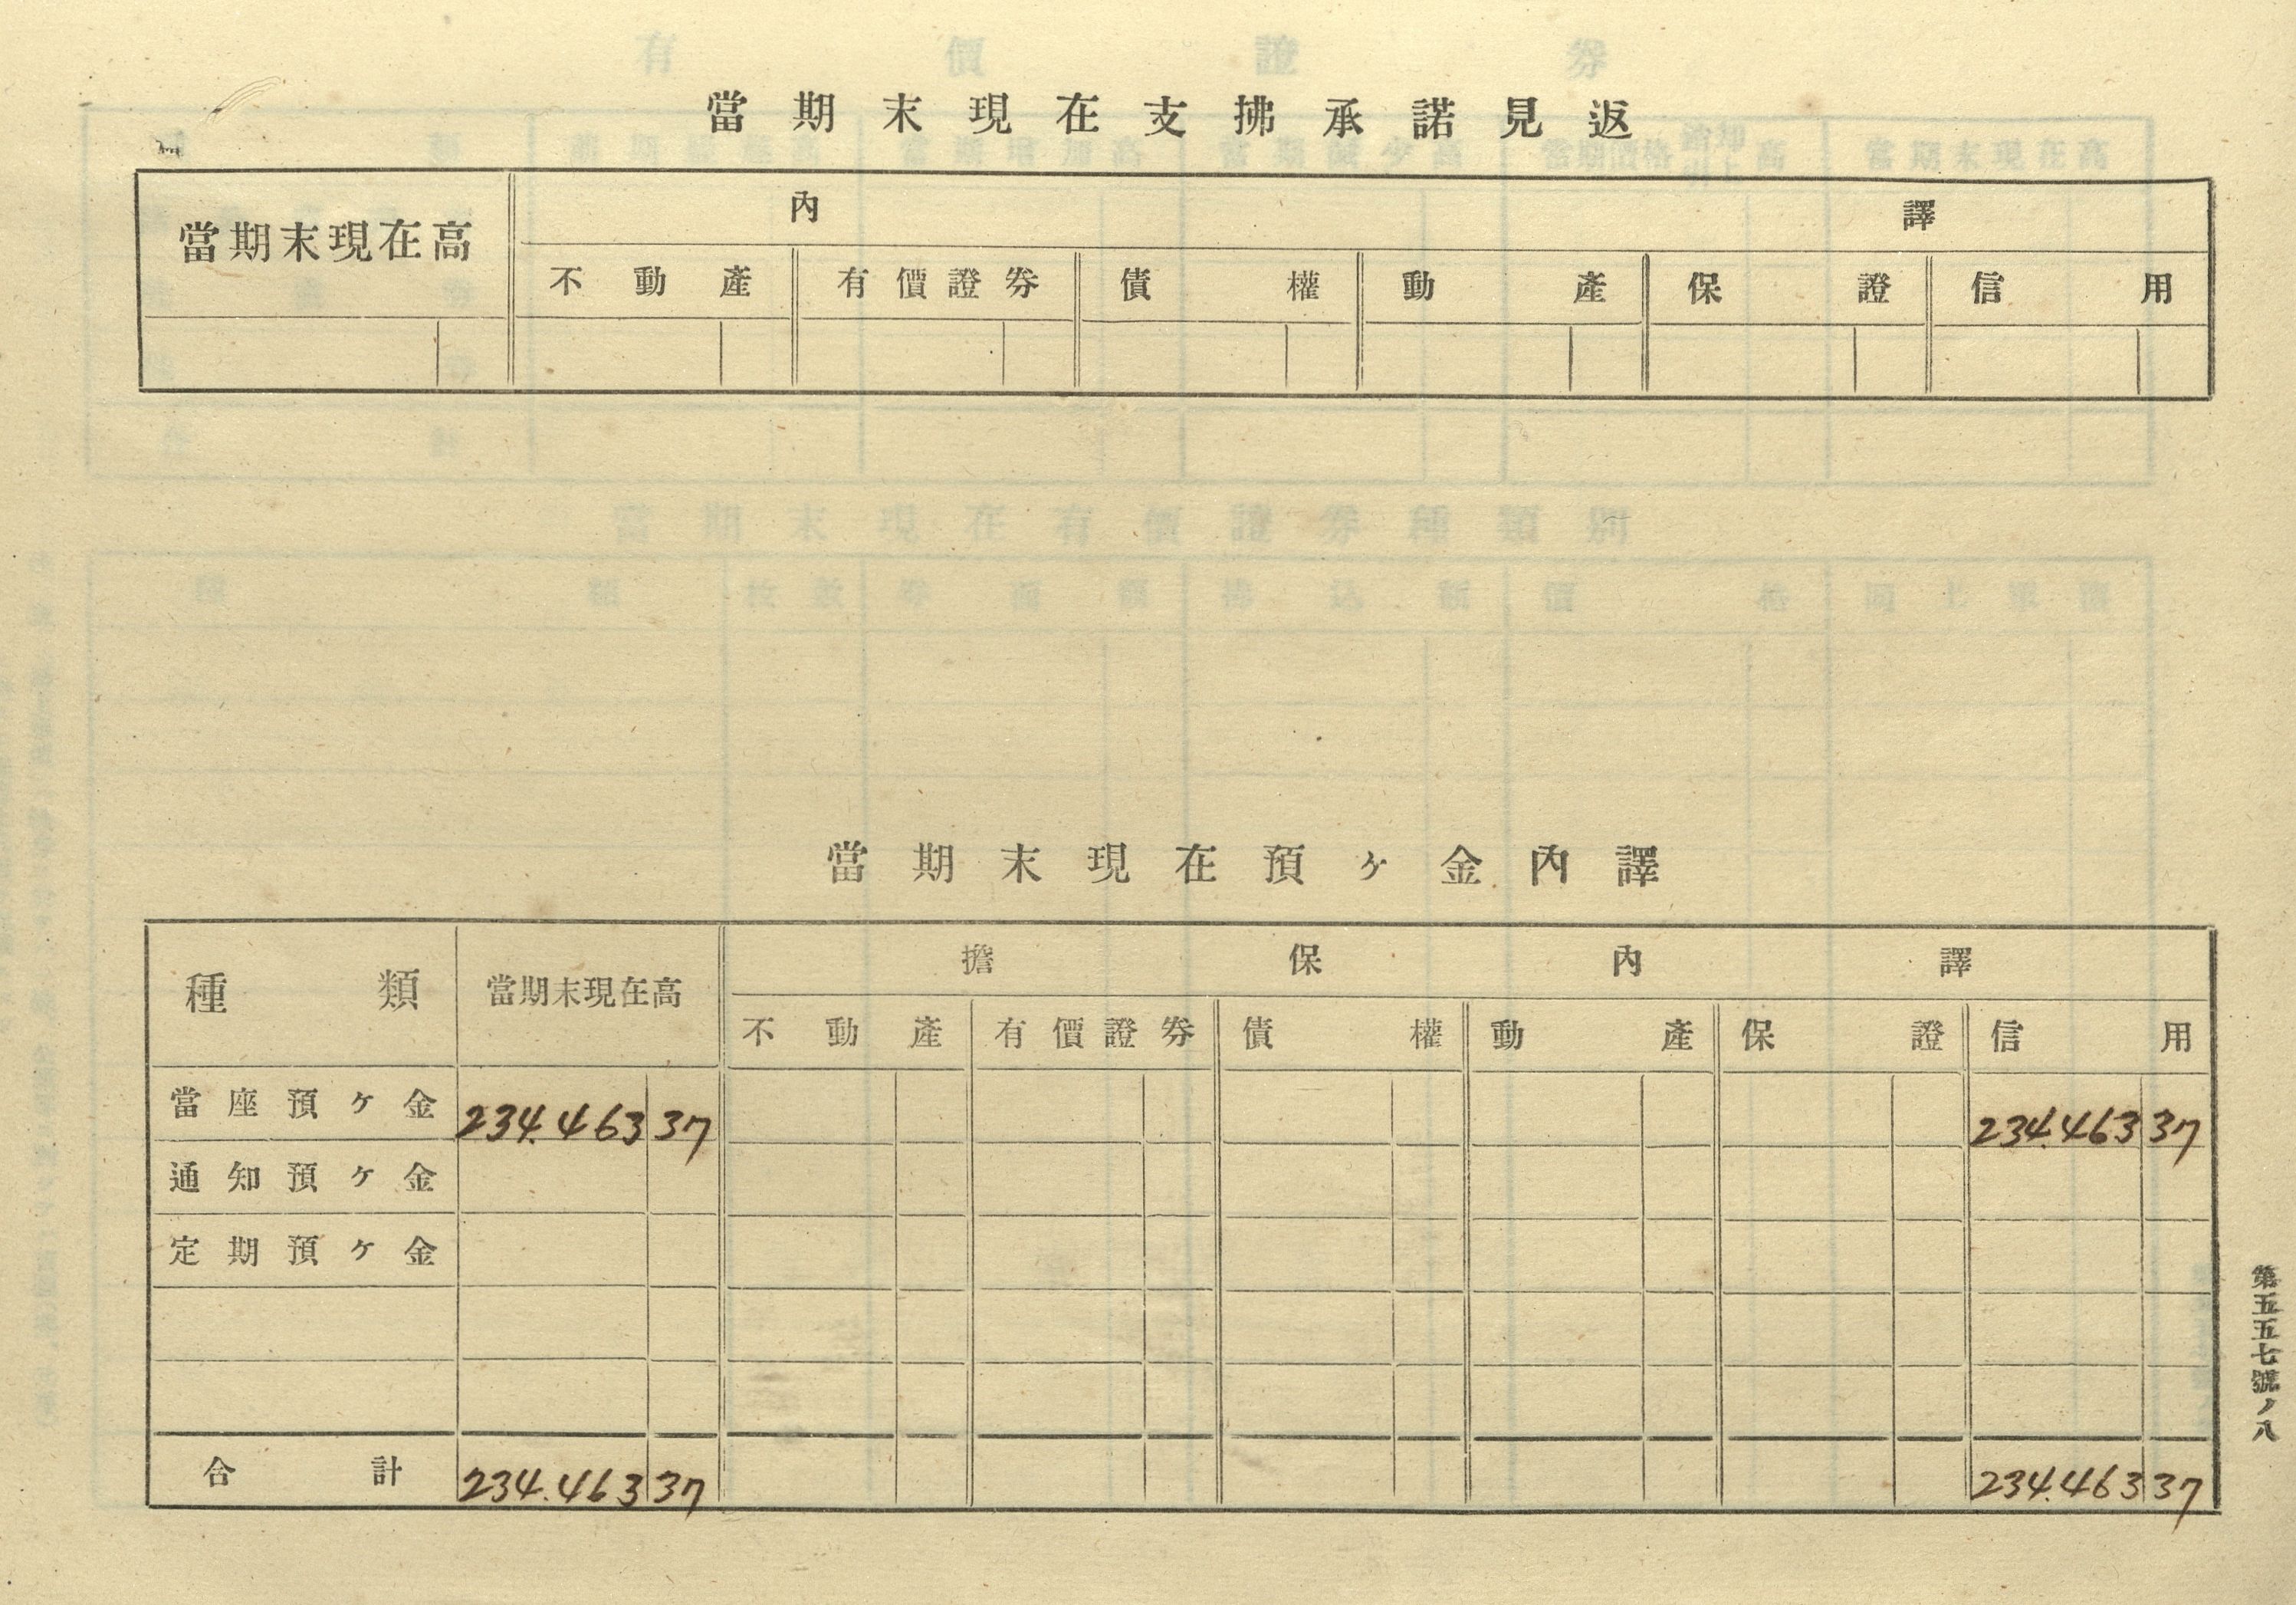 當期末現在支拂承諾見返
當期末現在高 內譯
不動產 有價證券 債權 動產 保證 信用
當期末現在預ヶ金內譯
種類 當期末現在高 擔保內譯
不動產 有價證券 債權 動產 保證 信用
當座預ヶ金 234.463 37 234.463 37
通知預ヶ金
定期預ヶ金
合計 234.463 37 234.463 37
第五五七號ノ八
有價證券
當期末現在有價證券種類別